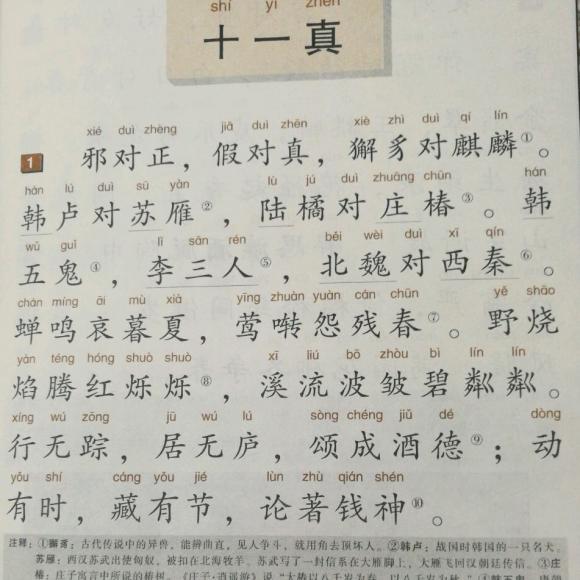 shí yī zhēn
十一真
xié duì zhèng jiǎ duì zhēn xiè zhì duì qí lín
1 邪对正，假对真，獬豸对麒麟①。
hán lú duì sū yàn lù jú duì zhuāng chūn hán
韩卢对苏雁②，陆橘对庄椿③。韩
wǔ guǐ lǐ sān rén běi wèi duì xī qín
五鬼④，李三人⑤，北魏对西秦⑥。
chán míng āi mù xià yīng zhuàn yuàn cán chūn yě shāo
蝉鸣哀暮夏，莺啭怨残春⑦。野烧
yàn téng hóng shuò shuò xī liú bō zhòu bì lín lín
焰腾红烁烁⑧，溪流波皱碧粼粼。
xíng wú zōng jū wú lú sòng chéng jiǔ dé dòng
行无踪，居无庐，颂成酒德⑨；动
yǒu shí cáng yǒu jié lùn zhù qián shén
有时，藏有节，论著钱神⑩。
注释：①獬豸：古代传说中的异兽，能辨曲直，见人争斗，就用角去顶坏人。②韩卢：战国时韩国的一只名犬。
苏雁：西汉苏武出使匈奴，被扣在北海牧羊。苏武写了一封信系在大雁脚上，大雁飞回汉朝廷传信。③庄
椿：庄子寓言中所说的椿树。《庄子·逍遥游》说